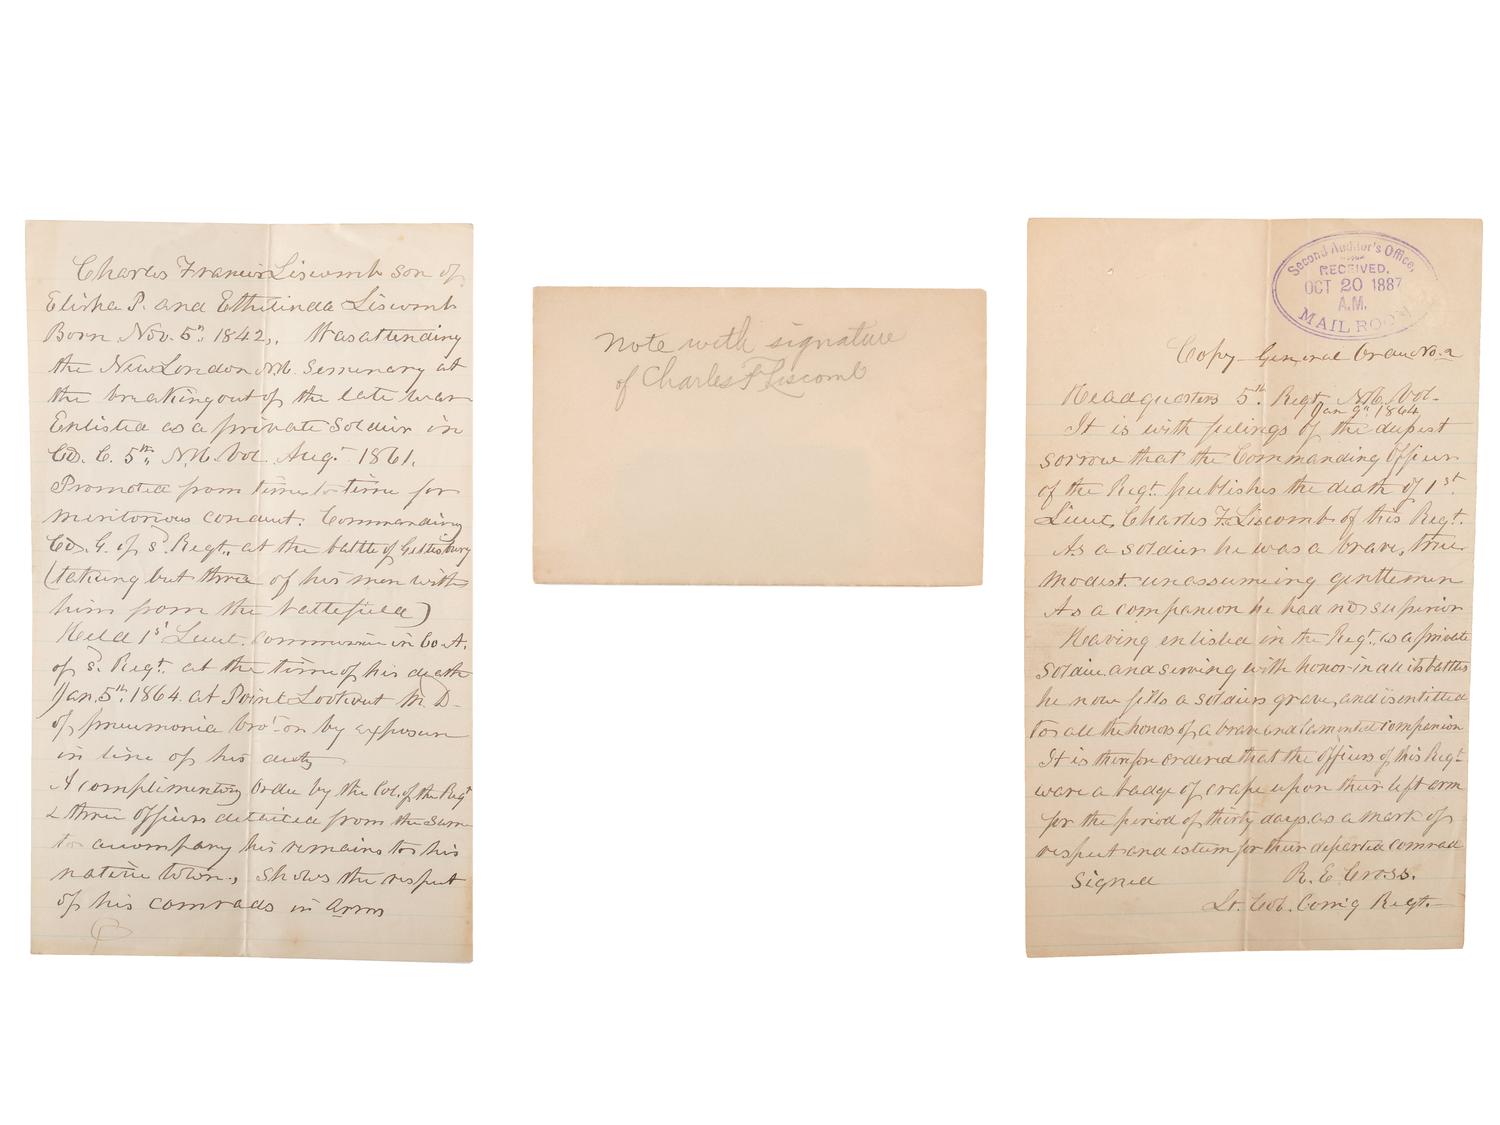 Charles Francis Liscomb son of
Elisha P. and Ethelinda Liscomb
Born Nov. 5th 1842,. Was attending
the New London N.H. Seminary at
the breaking out of the late war
Enlisted as a private Soldier in
Co. C. 5th N.H. Vol. Augt 1861.
Promoted from time to time for
meritorious conduct. Commanding
Co. G. of s. Regt. at the battle of Gettisburg
(taking but three of his men with
him from the battlefield)
Held 1st Lieut. commission in Co. A.
of s. Regt. at the time of his death
Jan. 5th 1864. at Point Lookout M.D.
of pneumonia brot on by exposure
in line of his duty
A complimentary order by the Col. of the Regt
& three officers detailed from the same
to accompany his remains to his
native town, shows the respect
of his comrads in arms
Note with signature
of Charles F Liscomb
Second Auditor's Office,
RECEIVED.
OCT 20 1887
A.M.
MAIL ROOM
Copy General Order No. 2
Headquarters 5th Regt N.H. Vol.
Jan 9th 1864
It is with feelings of the deepest
sorrow that the Commanding Officer
of the Regt. publishes the death of 1st
Lieut. Charles F. Liscomb of this Regt.
As a soldier he was a brave, true
modest. unassumeing gentlemen
As a companion he had no superior
Having enlisted in the Regt. as a private
soldier and serving with honor in all its battles
he now fills a soldiers grave, and is entitled
to all the honors of a brave and lamented companion
It is therefore ordered that the officers of this Regt
ware a badge of crape upon their left arm
for the period of thirty days as a mark of
respect and esteem for their departed comrad
Signed R. E. Cross.
Lt. Col. Com'g Regt.